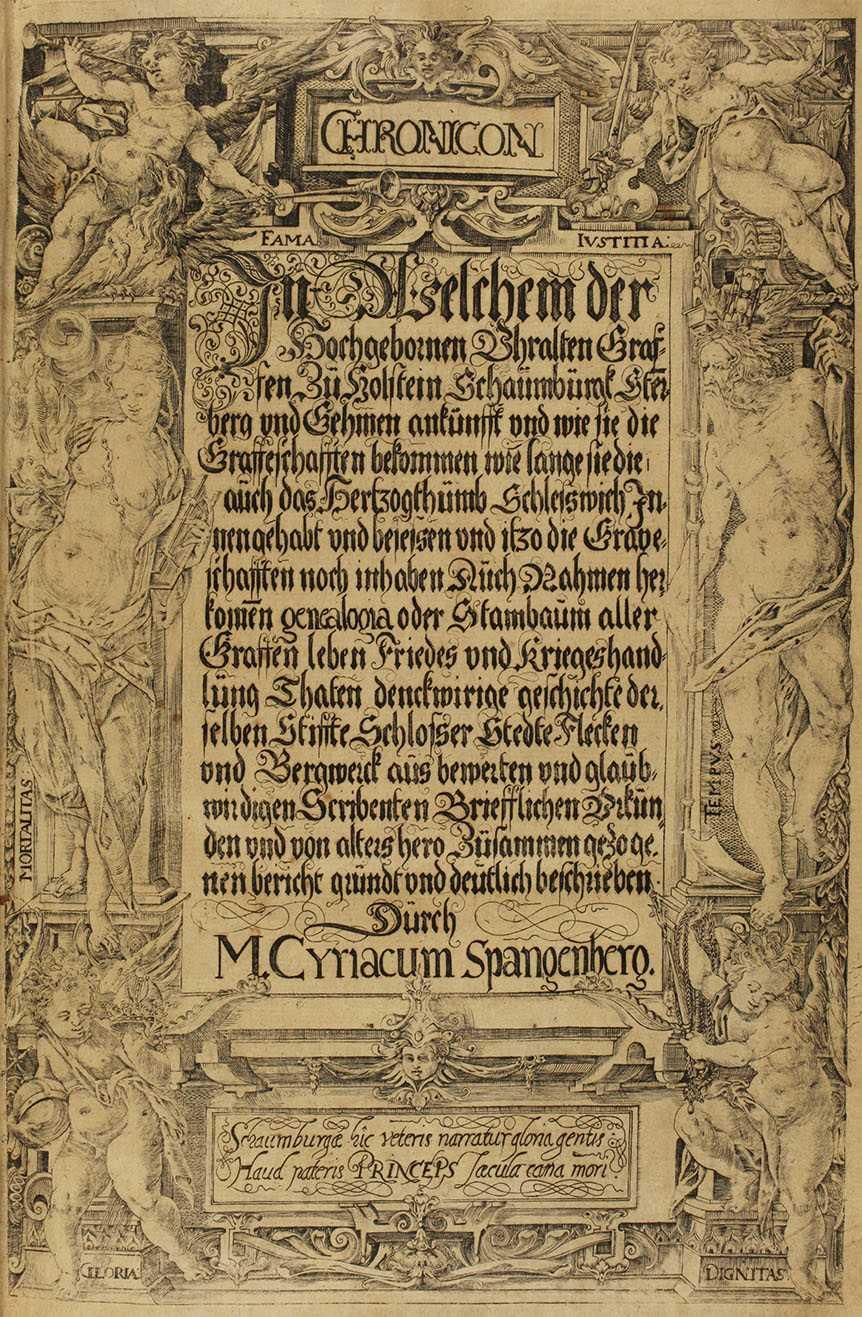 CHRONICON
FAMA
IVSTITIA
In Welchem der
Hochgebornen Vhralten Graf-
fen Zu Holstein Schaumburgk Ster
berg vnd Gehmen ankunfft vnd wie sie die
Graffeschafften bekommen wie lange sie die
auch das Hertzogthumb Schleiswich In-
nen gehabt vnd beseisen vnd itzo die Grave-
schafften noch inhaben Auch Nahmen her
komen genealogia oder Stambaum aller
Graffen leben Friedes vnd Krieges hand-
lung Thaten denckwirige geschichte der
selben Stiffte Schlosser Stedte Flecken
vnd Bergwerck aus bewerten vnd glaub-
wirdigen Scribenten Briefflichen Vrkun
den vnd von alters hero Zusammen gezoge
nen bericht grundt vnd deutlich beschrieben.
Durch
M. Cyriacum Spangenberg.
MORTALITAS
TEMPVS
Schaumburgæ hic veteris narratur gloria gentis
Haud pateris PRINCEPS sæcula cana mori
GLORIA
DIGNITAS